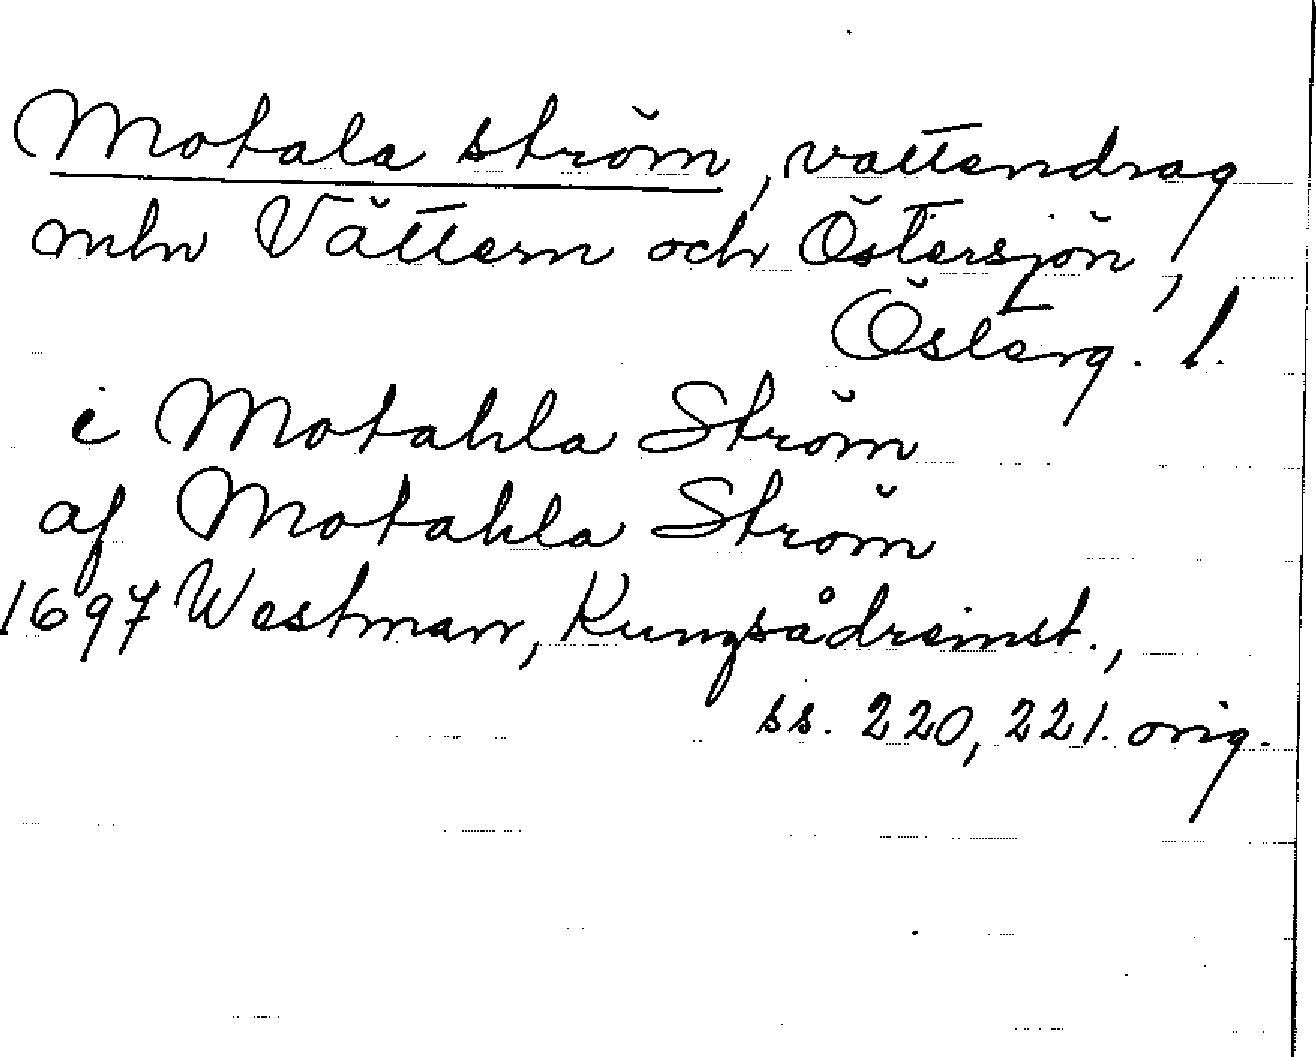 Motala ström, vattendrag
mln Vättern och Östersjön,
Österg. l.
i Motahla Ström
af Motahla Ström
1697 Westman, Kungsådreinst.,
ss. 220, 221. orig.